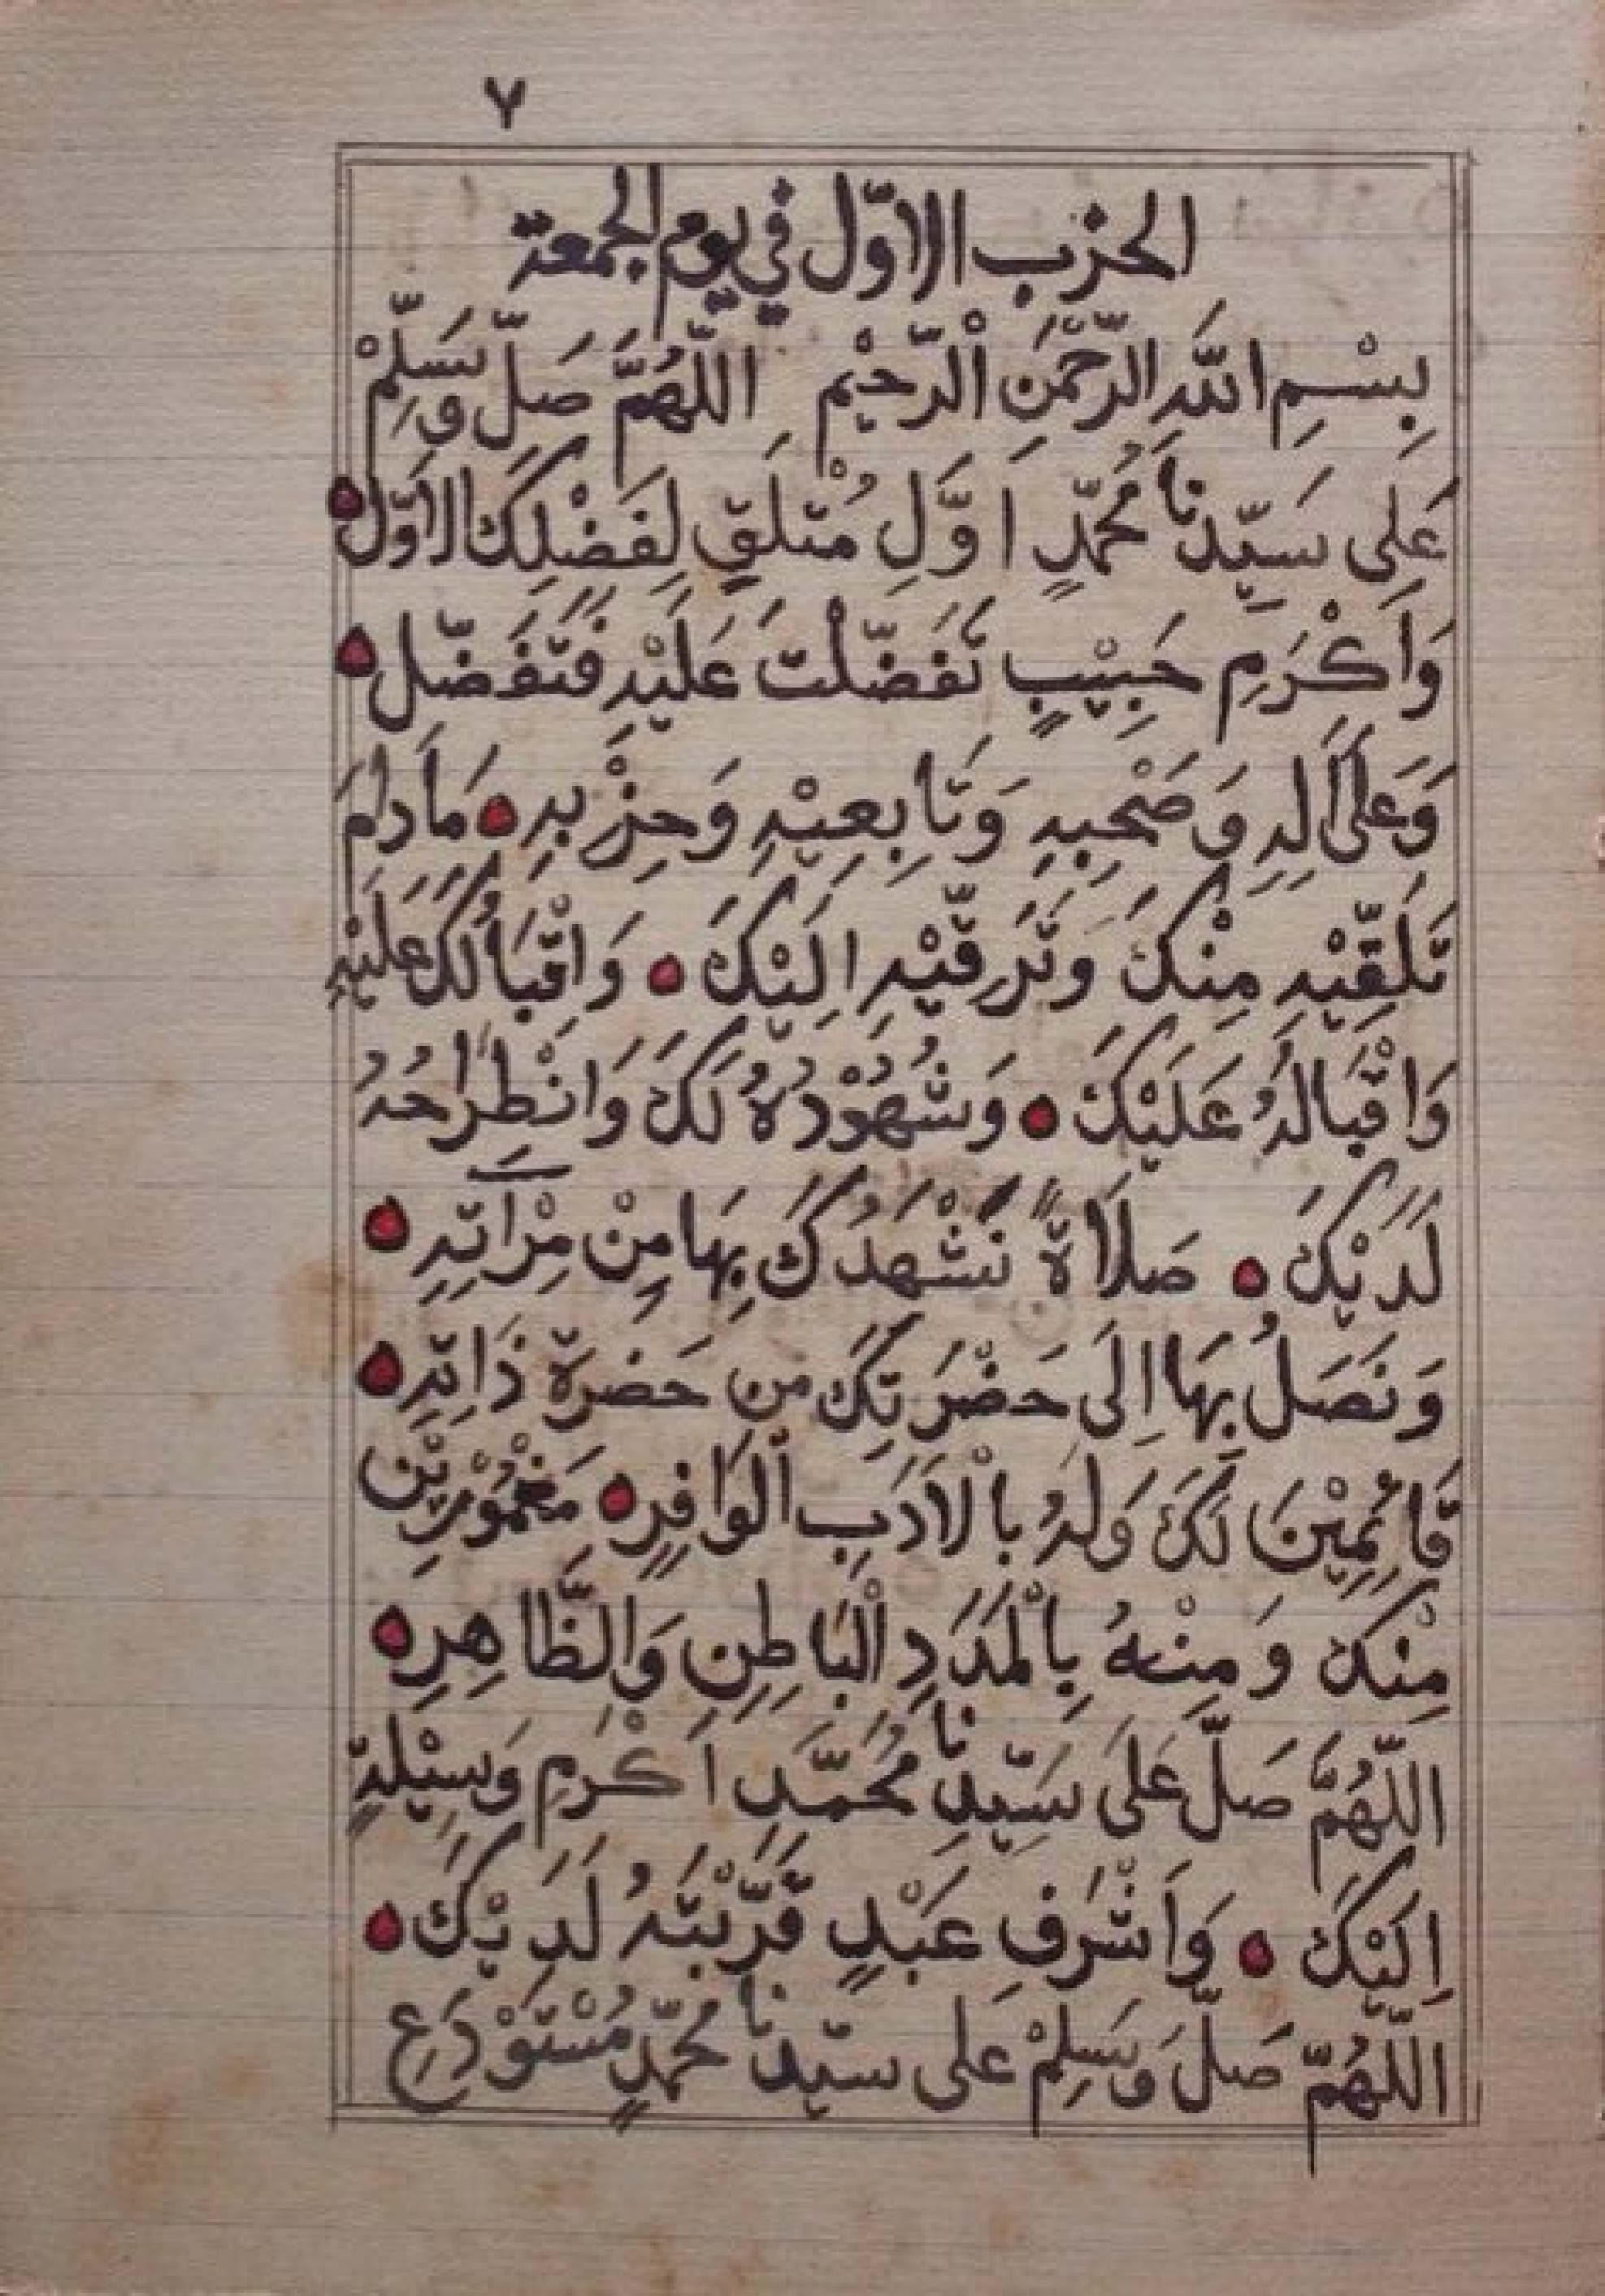 ٧
الحزب الاوّل في يوم الجمعة
بِسْمِ اللّٰهِ الرَّحْمٰنِ الْرَّحِيْمِ اَللّٰهُمَّ صَلِّ وَسَلِّمْ
عَلٰى سَيِّدِنَا مُحَمَّدٍ اَوَّلِ مُتْلَقٍ لِفَضْلِكَ الاَوَّل ه
وَاَكْرَمِ حَبِيْبٍ تَفَضَّلْتَ عَلَيْهِ فَتَفَضَّل ه
وَعَلٰى اٰلِهِ وَصَحْبِهِ وَتَابِعِيْهِ وَحِزْبِهِ ه مَادَامَ
تَلَقِّيْهِ مِنْكَ وَتَرَقِّيْهِ اِلَيْكَ ه وَاِقْبَالُكَ عَلَيْهِ
وَاِقْبَالُهُ عَلَيْكَ ه وَشُهُوْدُهُ لَكَ وَانْطِرَاحُهُ
لَدَيْكَ ه صَلَاةً نَشْهَدُكَ بِهَا مِنْ مِرْآتِهِ ه
وَنَصَلُ بِهَا اِلَى حَضْرَتِكَ مِن حَضرَةِ ذَاتِهِ ه
قَائِمِيْنَ لَكَ وَلَهُ بِالْاَدَبِ الْوَافِرِ ه مَغْمُوْرِيْنَ
مِنْكَ وَمِنْهُ بِالْمَدَدِ الْبَاطِنِ وَالظَّاهِرِ ه
اَللّٰهُمَّ صَلِّ عَلَى سَيِّدِنَا مُحَمَّدٍ اَكْرَمِ وَسِيْلَةٍ
اِلَيْكَ ه وَاَشْرَفِ عَبْدٍ قَرَّبْتَهُ لَدَيْكَ ه
اَللّٰهُمَّ صَلِّ وَسَلِّمْ عَلٰى سَيِّدِنَا مُحَمَّدٍ مُسْتَوْدَعِ